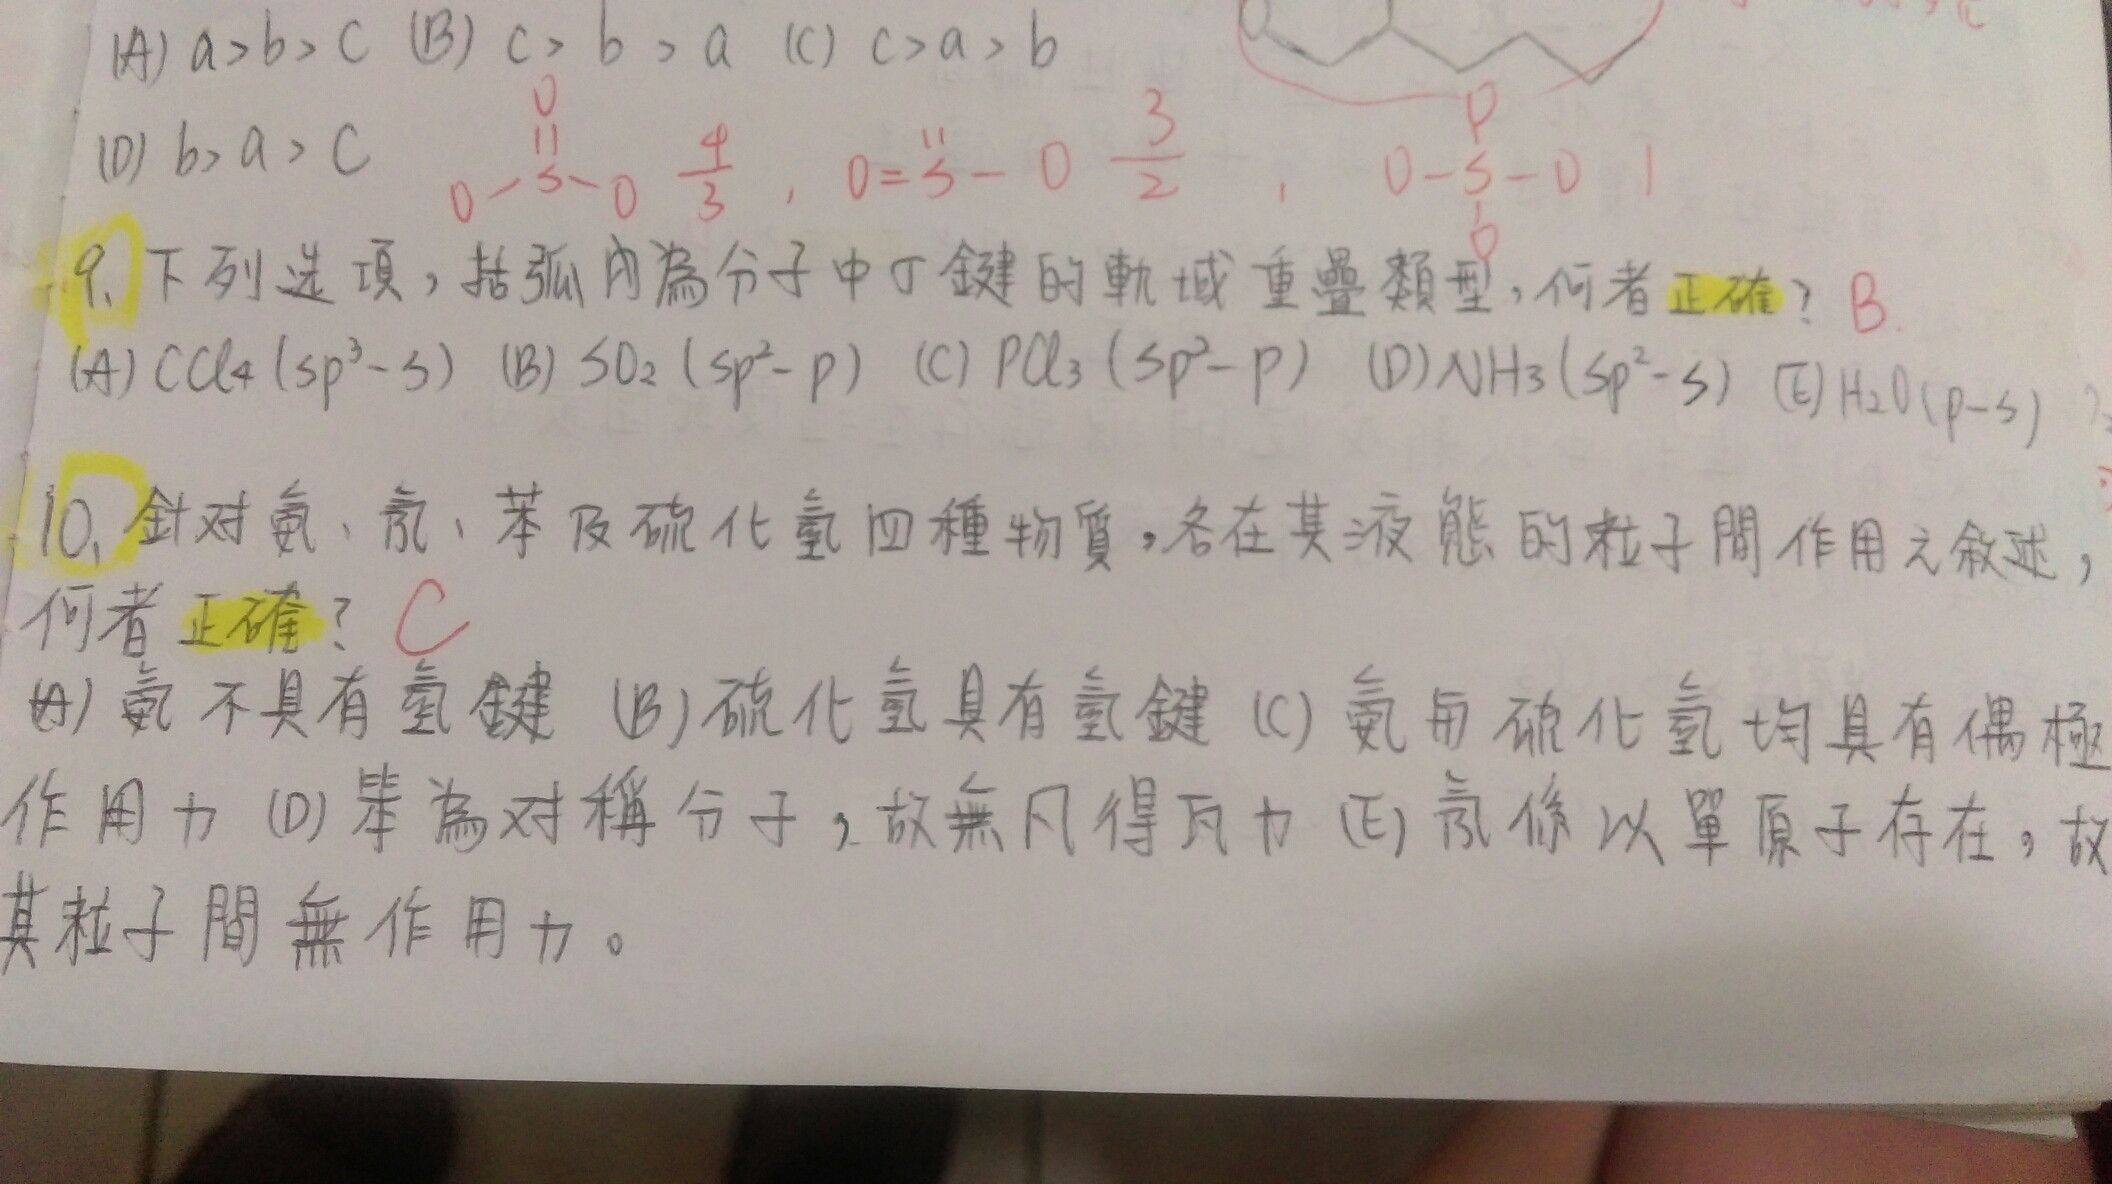 (A) a>b>c (B) c>b>a (C) c>a>b
(D) b>a>c
O
=
O-S-O 4/3 , O=S̈-O 3/2 , O-S-O 1
O
O
9. 下列选項，括弧內為分子中σ鍵的軌域重疊類型，何者正確？ B.
(A) CCl4 (sp³-s) (B) SO2 (sp²-p) (C) PCl3 (sp²-p) (D) NH3 (sp²-s) (E) H2O (p-s)
10. 針对氨、氖、苯及硫化氫四種物質，各在其液態的粒子間作用之敘述，
何者正確？ C
(A) 氨不具有氫鍵 (B) 硫化氫具有氫鍵 (C) 氨与硫化氫均具有偶極
作用力 (D) 苯為对稱分子，故無凡得瓦力 (E) 氖係以單原子存在，故
其粒子間無作用力。